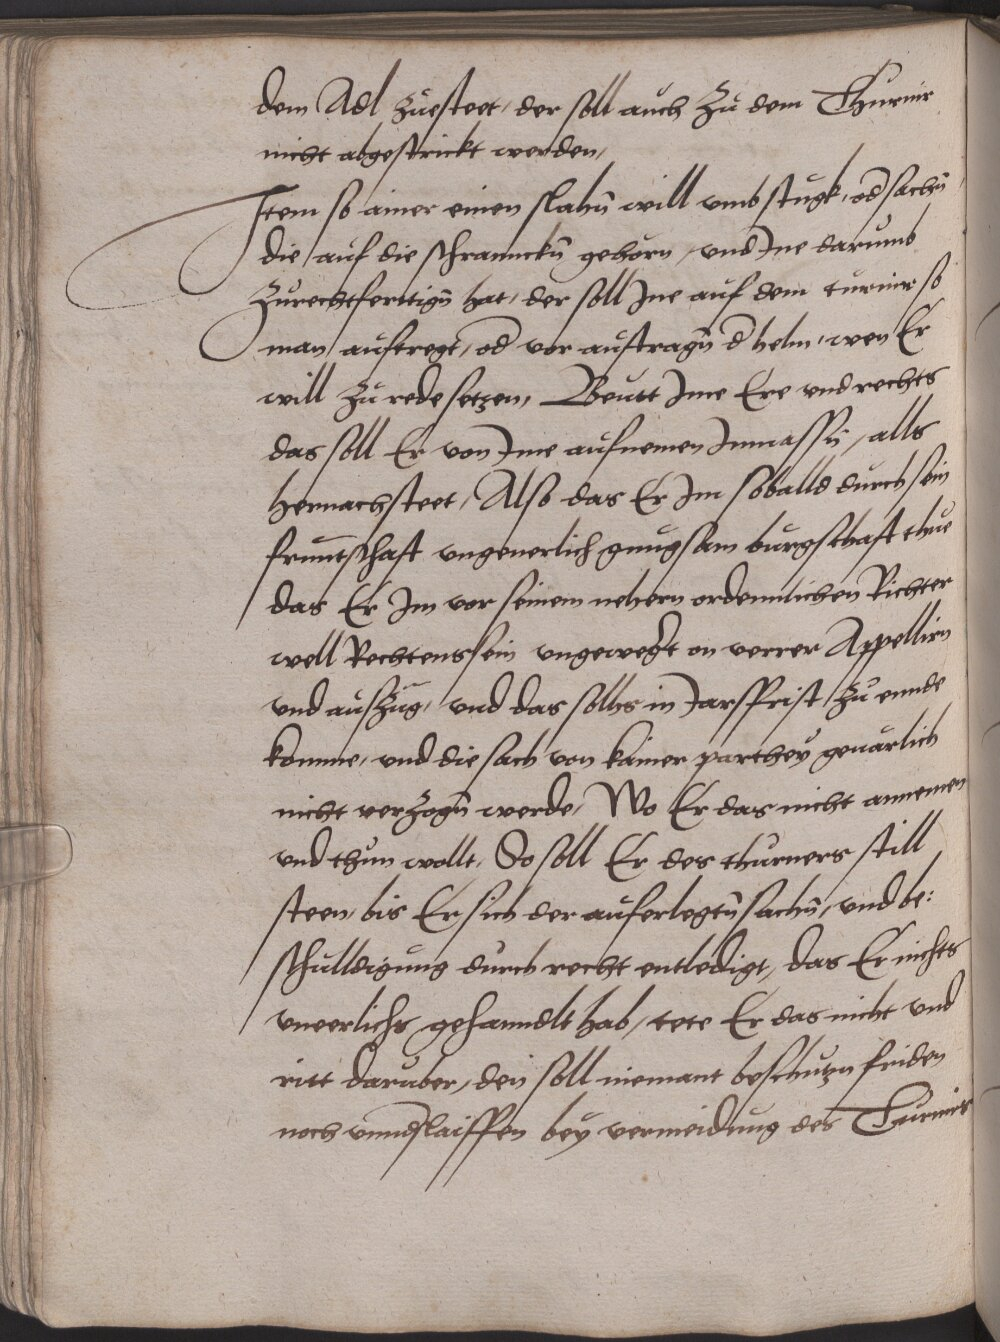 dem Adl Zuesteet, der soll auch Zu dem Thurnir
nicht abgestrickt werden,
Item so ainer einen slahn̄ will vmb stugk, od sachn̄
die auf die schrannckn̄ gehorn, vnd Ine darumb
Zurechtferttign̄ hat, der soll Ine auf dem turnir so
man auftregt, od vor austragn̄ d helm, wen Er
will Zu rede setzen, Beutt Ime Ere vnd rechts
das soll Er von Ime aufnemen Inmassn̄, alls
hernach steet, Also das Er Im soballd durch sein
frunntschaft vngeuerlich gnugsam burgschaft thue
das Er Im vor seinem nehern ordennlichen Richter
well Rechtens sein vngewegt on verrer Appellirn
vnd auszug, vnd das solhs in Jarsfrist Zu ennde
komme, vnd die sach von kainer parthey geuarlich
nicht verzogn̄ werde, Wo Er das nicht annemen
vnd thun wollt, So soll Er des thurners still
steen, bis Er sich der auferlegtn̄ sachn̄, vnd be:
schulldigung durch recht entledigt, das Er nichts
vneerlichs gehanndlt hab, tete Er das nicht vnd
ritt daruber, den soll niemant beschutzn friden
noch vnnd slaiffen bey vermeidung des Turnirs